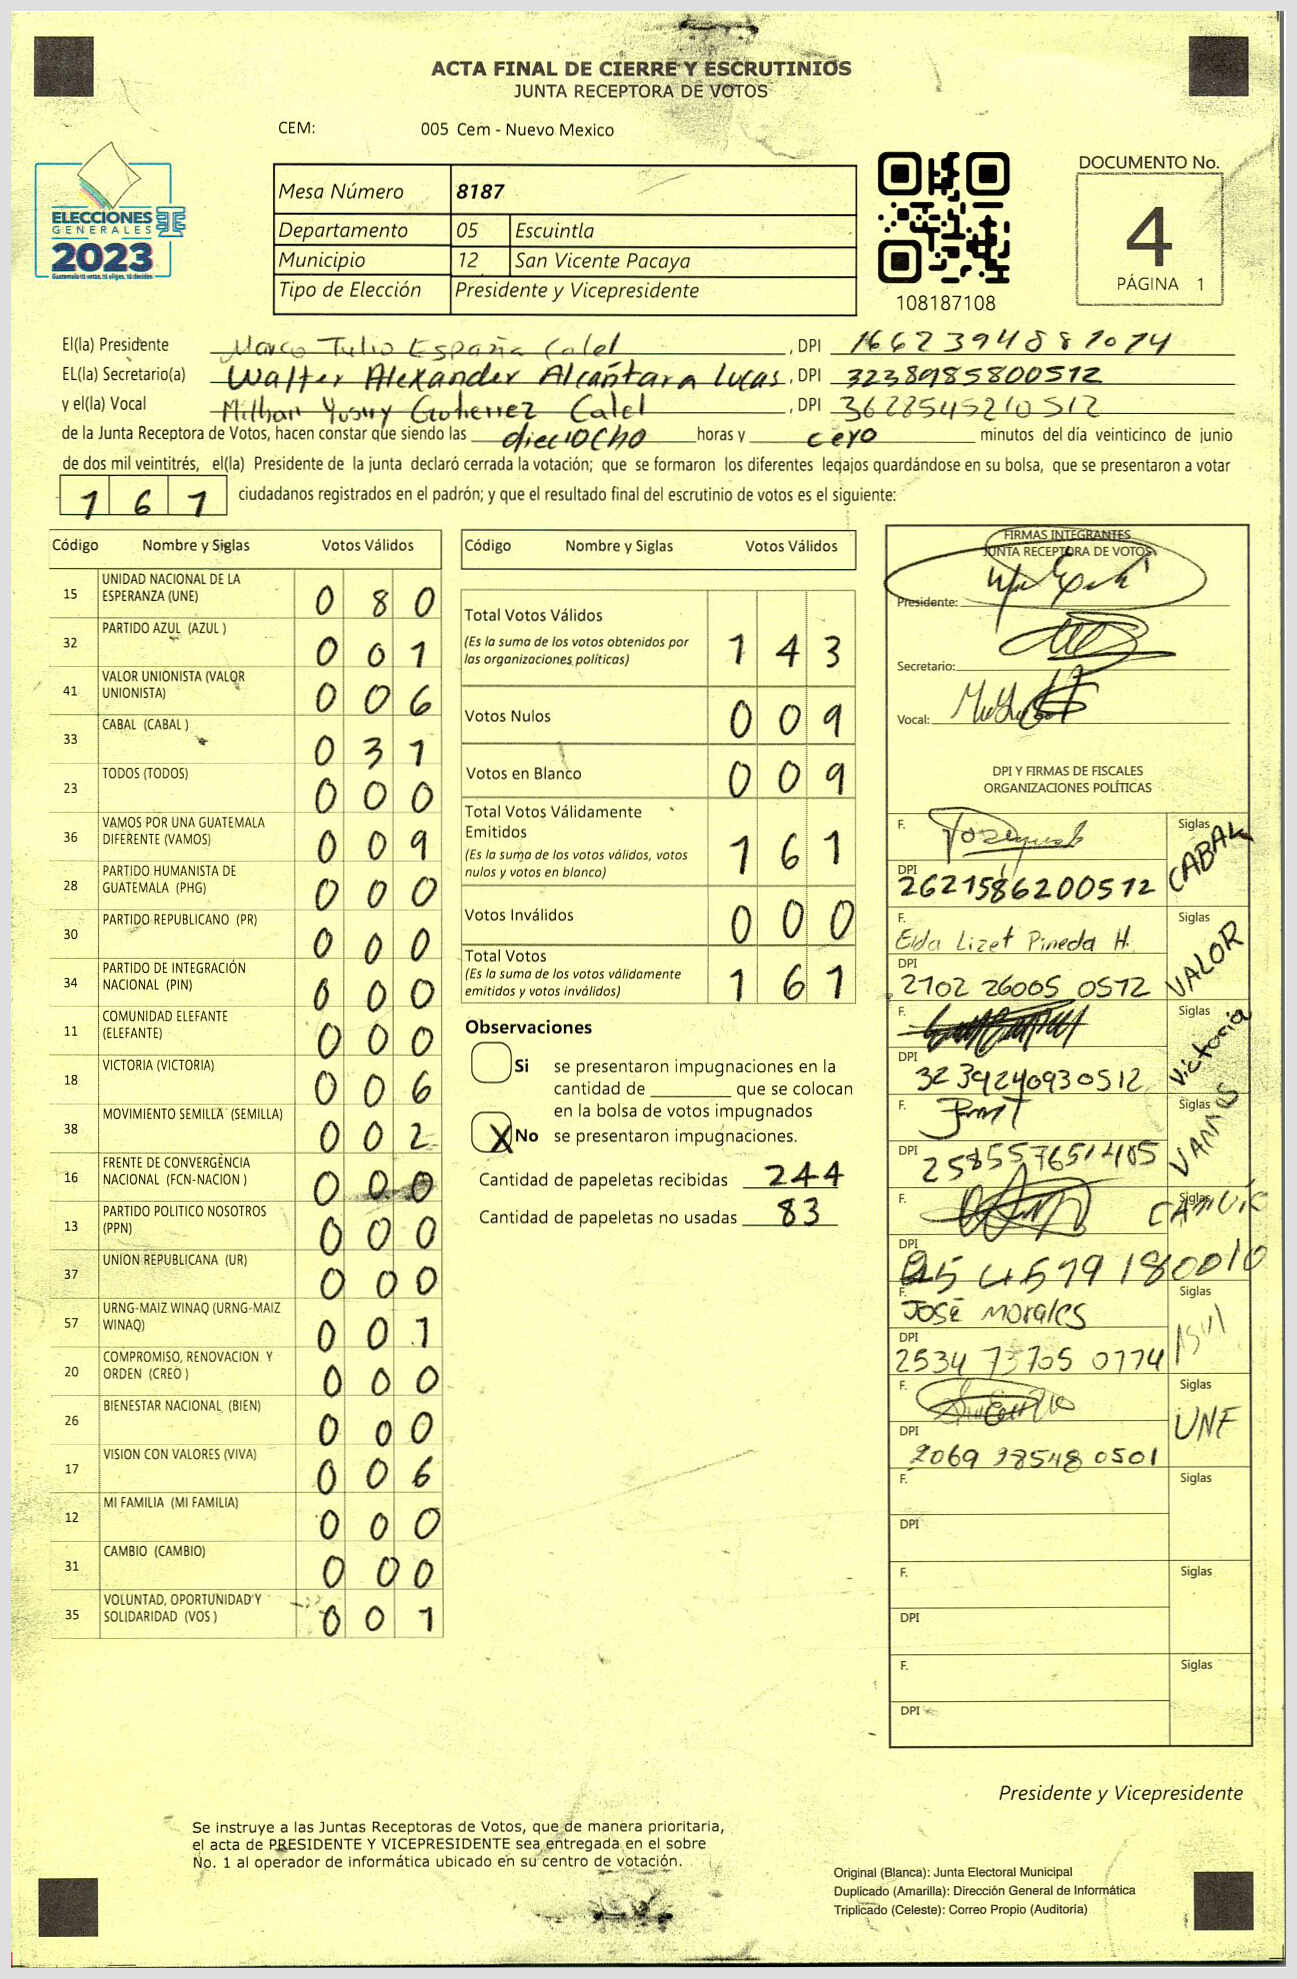 ACTA FINAL DE CIERRE Y ESCRUTINIOS
JUNTA RECEPTORA DE VOTOS
CEM: 005 Cem - Nuevo Mexico
ELECCIONES
GENERALES
2023
Mesa Número 8187
Departamento 05 Escuintla
Municipio 12 San Vicente Pacaya
Tipo de Elección Presidente y Vicepresidente
108187108
DOCUMENTO No.
4
PÁGINA 1
El(la) Presidente Marco Tulio España Calel, DPI 1662394881014
EL(la) Secretario(a) Walter Alexander Alcántara Lucas, DPI 3238985800512
y el(la) Vocal Gutierrez Calel, DPI 3628545210512
de la Junta Receptora de Votos, hacen constar que siendo las dieciocho horas y cero minutos del día veinticinco de junio
de dos mil veintitrés, el(la) Presidente de la junta declaró cerrada la votación; que se formaron los diferentes legajos guardándose en su bolsa, que se presentaron a votar
161 ciudadanos registrados en el padrón; y que el resultado final del escrutinio de votos es el siguiente:
Código Nombre y Siglas Votos Válidos
15 UNIDAD NACIONAL DE LA ESPERANZA (UNE) 0 8 0
32 PARTIDO AZUL (AZUL ) 0 0 1
41 VALOR UNIONISTA (VALOR UNIONISTA) 0 0 6
33 CABAL (CABAL ) 0 3 1
23 TODOS (TODOS) 0 0 0
36 VAMOS POR UNA GUATEMALA DIFERENTE (VAMOS) 0 0 9
28 PARTIDO HUMANISTA DE GUATEMALA (PHG) 0 0 0
30 PARTIDO REPUBLICANO (PR) 0 0 0
34 PARTIDO DE INTEGRACIÓN NACIONAL (PIN) 0 0 0
11 COMUNIDAD ELEFANTE (ELEFANTE) 0 0 0
18 VICTORIA (VICTORIA) 0 0 6
38 MOVIMIENTO SEMILLA (SEMILLA) 0 0 2
16 FRENTE DE CONVERGENCIA NACIONAL (FCN-NACION ) 0 0 0
13 PARTIDO POLITICO NOSOTROS (PPN) 0 0 0
37 UNION REPUBLICANA (UR) 0 0 0
57 URNG-MAIZ WINAQ (URNG-MAIZ WINAQ) 0 0 1
20 COMPROMISO, RENOVACION Y ORDEN (CREO ) 0 0 0
26 BIENESTAR NACIONAL (BIEN) 0 0 0
17 VISION CON VALORES (VIVA) 0 0 6
12 MI FAMILIA (MI FAMILIA) 0 0 0
31 CAMBIO (CAMBIO) 0 0 0
35 VOLUNTAD, OPORTUNIDAD Y SOLIDARIDAD (VOS ) 0 0 1
Código Nombre y Siglas Votos Válidos
Total Votos Válidos 1 4 3
(Es la suma de los votos obtenidos por
las organizaciones políticas)
Votos Nulos 0 0 9
Votos en Blanco 0 0 9
Total Votos Válidamente
Emitidos 1 6 1
(Es la suma de los votos válidos, votos
nulos y votos en blanco)
Votos Inválidos 0 0 0
Total Votos 1 6 1
(Es la suma de los votos válidamente
emitidos y votos inválidos)
Observaciones
Si se presentaron impugnaciones en la
cantidad de ________ que se colocan
en la bolsa de votos impugnados
X No se presentaron impugnaciones.
Cantidad de papeletas recibidas 244
Cantidad de papeletas no usadas 83
FIRMAS INTEGRANTES
JUNTA RECEPTORA DE VOTOS
Presidente:
Secretario:
Vocal:
DPI Y FIRMAS DE FISCALES
ORGANIZACIONES POLÍTICAS
F. Siglas CABAL
DPI 2621586200512
F. Elda Lizet Pineda H. Siglas VALOR
DPI 2102 26005 0512
F. Siglas Victoria
DPI 3239240930512
F. Siglas VAMOS
DPI
F. Siglas
DPI
F. José Morales Siglas
DPI 2534 73705 0774
F. Siglas UNE
DPI 2069 28548 0501
F. Siglas
DPI
F. Siglas
DPI
F. Siglas
DPI
Presidente y Vicepresidente
Se instruye a las Juntas Receptoras de Votos, que de manera prioritaria,
el acta de PRESIDENTE Y VICEPRESIDENTE sea entregada en el sobre
No. 1 al operador de informática ubicado en su centro de votación.
Original (Blanca): Junta Electoral Municipal
Duplicado (Amarilla): Dirección General de Informática
Triplicado (Celeste): Correo Propio (Auditoría)